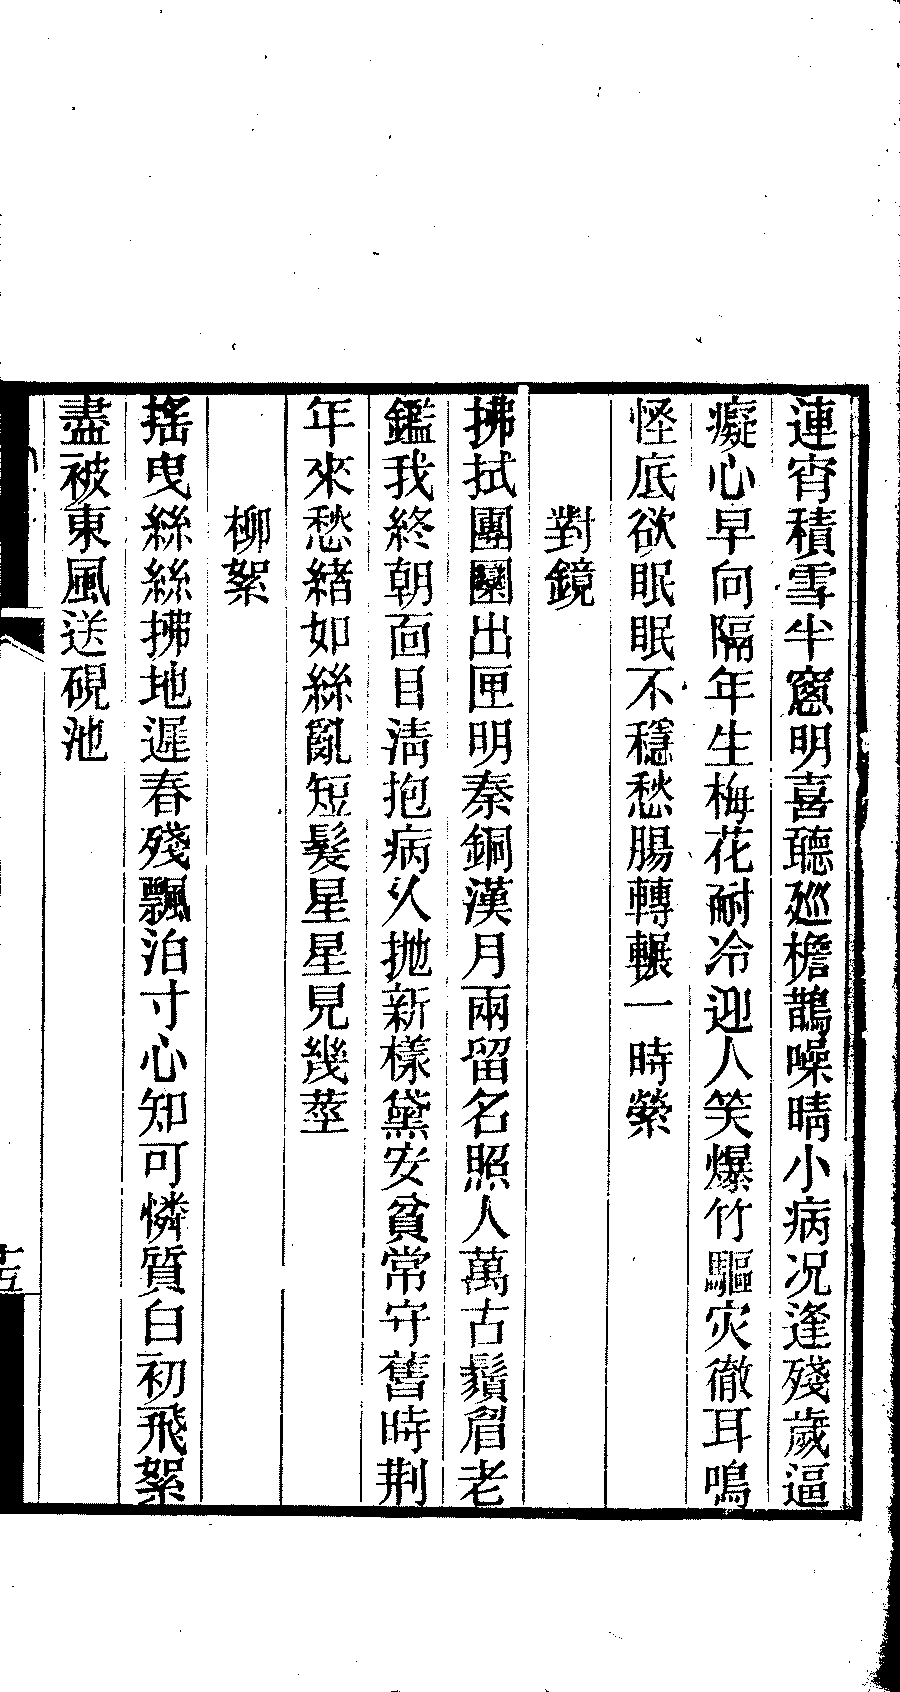 連宵積雪半窻明喜聽廵檐鵲噪晴小病况逢殘歲逼
癡心早向隔年生梅花耐冷迎人笑爆竹驅灾徹耳鳴
怪底欲眠眠不穩愁腸轉輾一時縈
對鏡
拂拭團圞出匣明秦銅漢月兩留名照人萬古鬚眉老
鑑我終朝面目淸抱病久抛新樣黛安貧常守舊時荆
年來愁緖如絲亂短髮星星見幾莖
柳絮
搖曳絲絲拂地遲春殘飄泊寸心知可憐質白初飛絮
盡被東風送硯池
十五